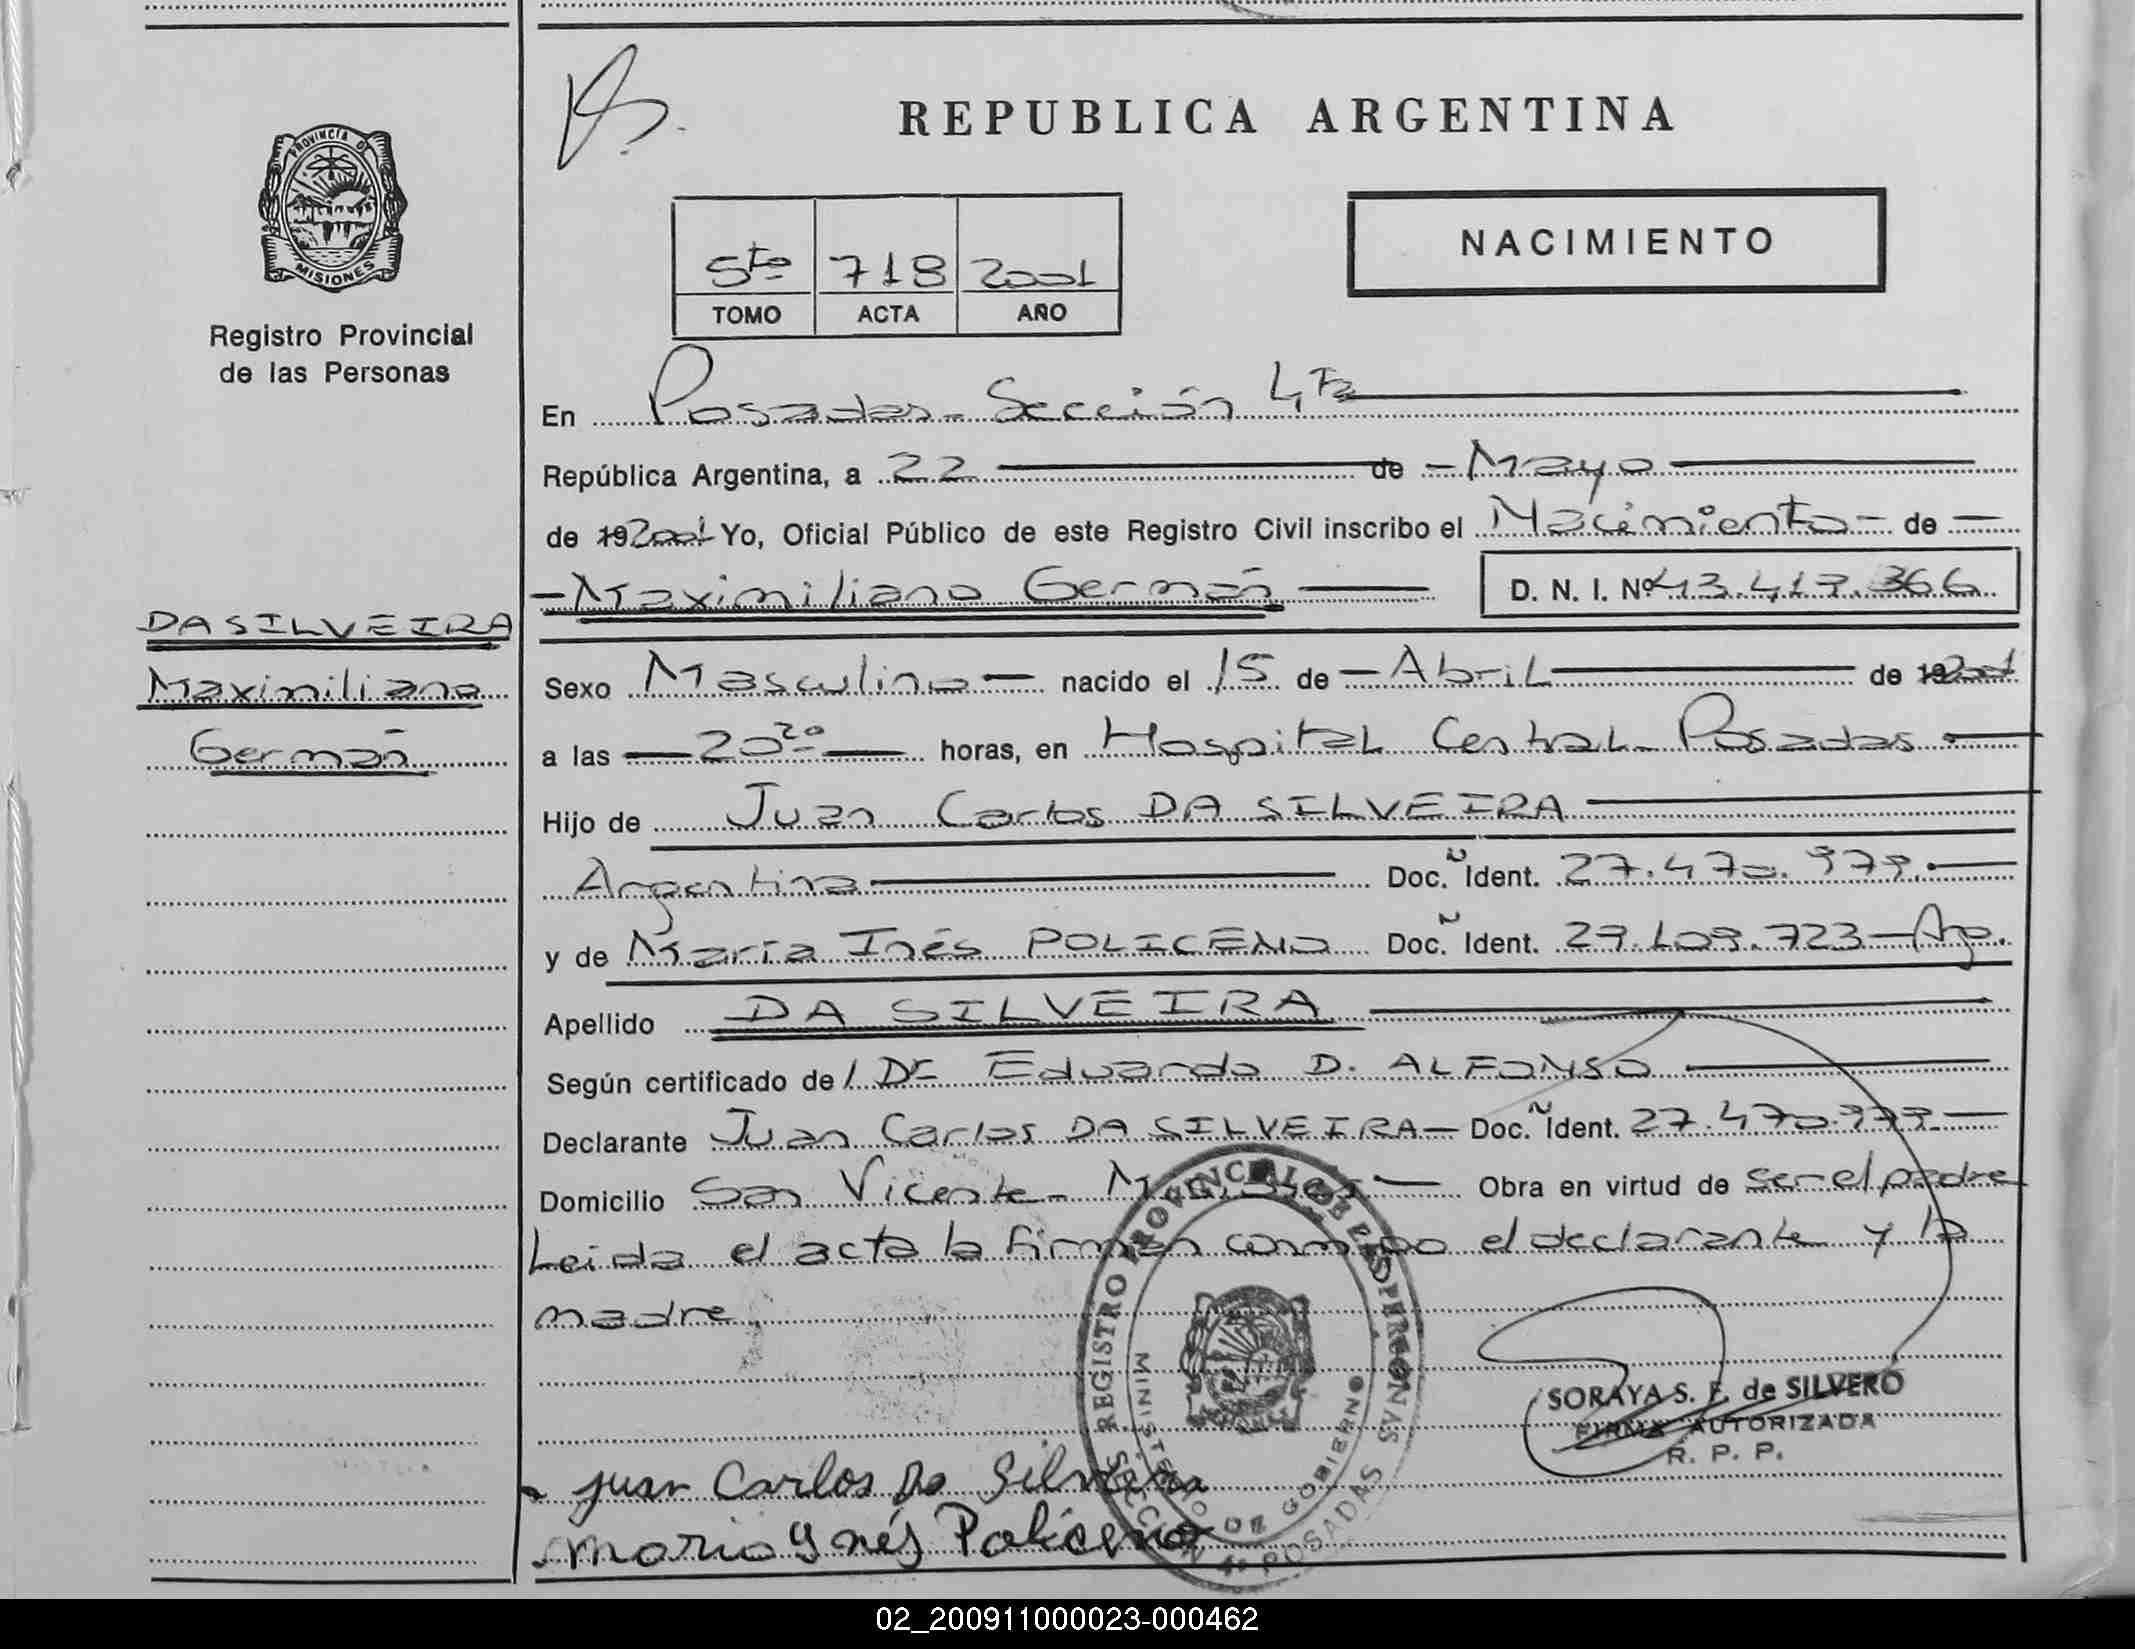 REPUBLICA ARGENTINA
PROVINCIA D
MISIONES
Registro Provincial
de las Personas
5to 718 2001
TOMO ACTA AÑO
NACIMIENTO
En Posadas - Sección 4ta
República Argentina, a 22 de - Mayo
de 192001 Yo, Oficial Público de este Registro Civil inscribo el Nacimiento - de -
- Maximiliano Germán D. N. I. Nº 43.417.366
DA SILVEIRA
Maximiliano
Germán
Sexo Masculino - nacido el 15 de - Abril de 192001
a las 20 20 horas, en Hospital Central - Posadas
Hijo de Juan Carlos DA SILVEIRA
Argentina Doc. Ident. 27.470.979.-
y de María Inés POLICENO Doc. Ident. 29.109.723 - Arg.
Apellido DA SILVEIRA
Según certificado de / Dr Eduardo D. ALFONSO
Declarante Juan Carlos DA SILVEIRA - Doc. Ident. 27.470.979 -
Domicilio San Vicente - Misiones - Obra en virtud de ser el padre
Leida el acta la firman conmigo el declarante y la
madre.
REGISTRO PROVINCIAL DE LAS PERSONAS
MINISTERIO DE GOBIERNO
SECCION 4º POSADAS
SORAYA S. F. de SILVERO
FIRMA AUTORIZADA
R. P. P.
Juan Carlos Da Silveira
Maria Ynés Policeno
02_200911000023-000462